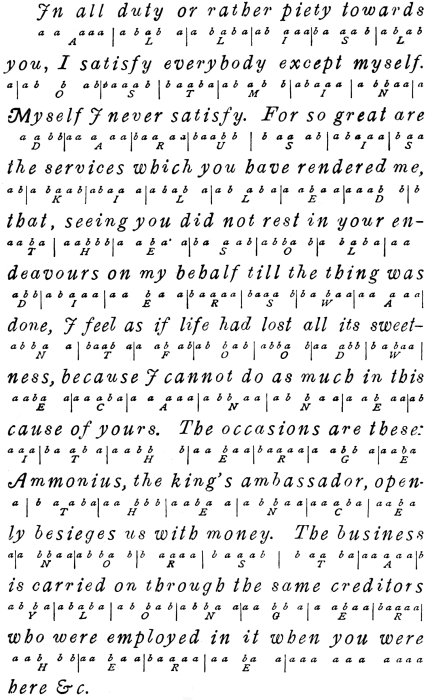 In all duty or rather piety towards
aa aaa|abab a| baba|ab aaa|ba aab|abab
A L L I S L
you, I satisfy everybody except myself.
a|ab b ab|baaab| baaba|abab b|abaaa| abbaa|a
O S T M I N
Myself I never satisfy. For so great are
aabb|aa a aa|baa aa|baabb| baa ab| abaaa| baa
D A R U S I S
the services which you have rendered me,
ab|a baab|abaa a|abab a|ab aba|a abaa|aaab b|b
K I L L E D
that, seeing you did not rest in your en-
aaba| aabbb|a aba a|ba aab| abba b|a baba| aa
T H E S O L
deavours on my behalf till the thing was
abb|abaaa| aa ba a|baaaa| baaa b|ba baa|aa aaa|
D I E R S W A
done, I feel as if life had lost all its sweet-
abba a| baab a|a ab ab|ab bab| abba b|aa abb| babaa|
N T F O O D W
ness, because I cannot do as much in this
aaba a|aaaba|a a aaa|abb aa| ab baa|a ab aa|ab
E C A N N E
cause of yours. The occasions are these:
aaa|ba ab a|aabb b|aa baa|baaaa|a abb a|aaba
I T H E R G E
Ammonius, the king's ambassador, open-
a|baaba|aa bbb| aabaa| abbaa|aaaba| aaba
T H E N C E
ly besieges us with money. The business
a|a bbaa|abba b|b aaaa| baaab| baa ba|aaaaa|b
N O R S T A
is carried on through the same creditors
ab ba|ababa| ab bab|abba a|aa bba|a abaa|baaaa|
Y L O N G E R
who were employed in it when you were
aab bb|aa baa|baaaa| aa ba a|aaa aaa aaaa
H E R E
here &c.